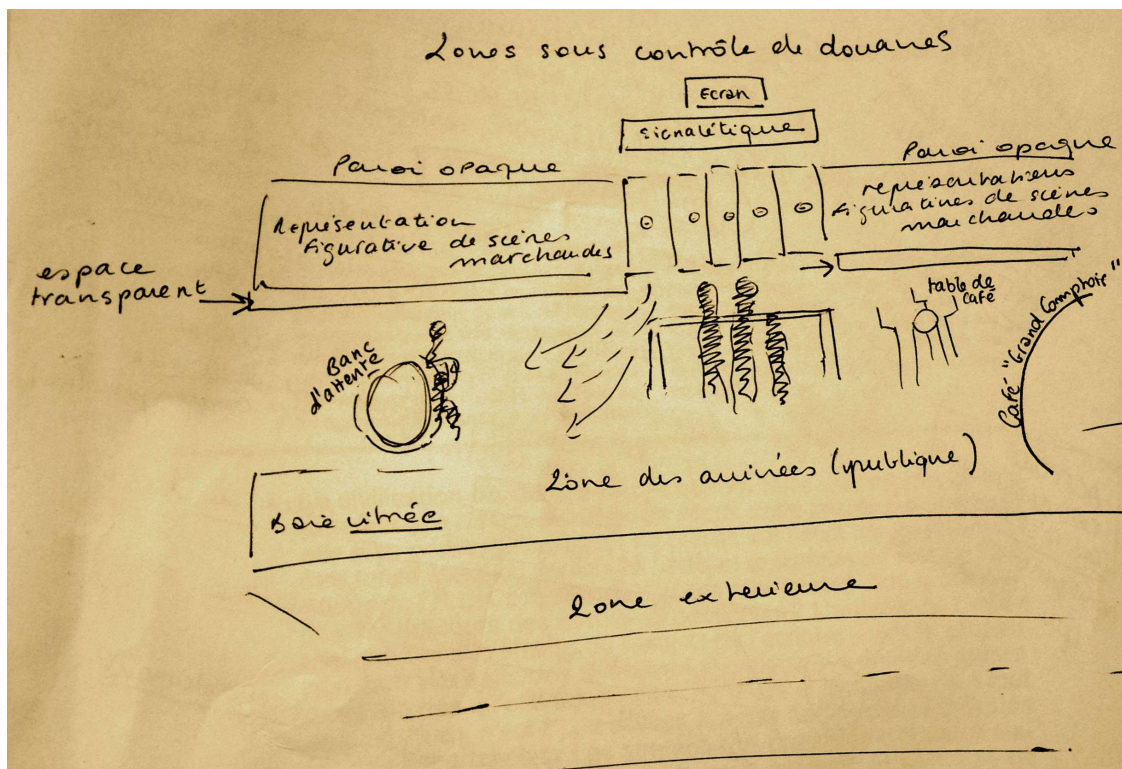 Zones sous contrôle de douanes
Ecran
Signalétique
Paroi opaque
Paroi opaque
Représentation
figurative de scènes
marchandes
représentations
figuratives de scènes
marchandes
espace
transparent
table de
café
Café "Grand Comptoir"
Banc
d'attente
Zône des arrivées (publique)
Baie vitrée
Zone exterieure